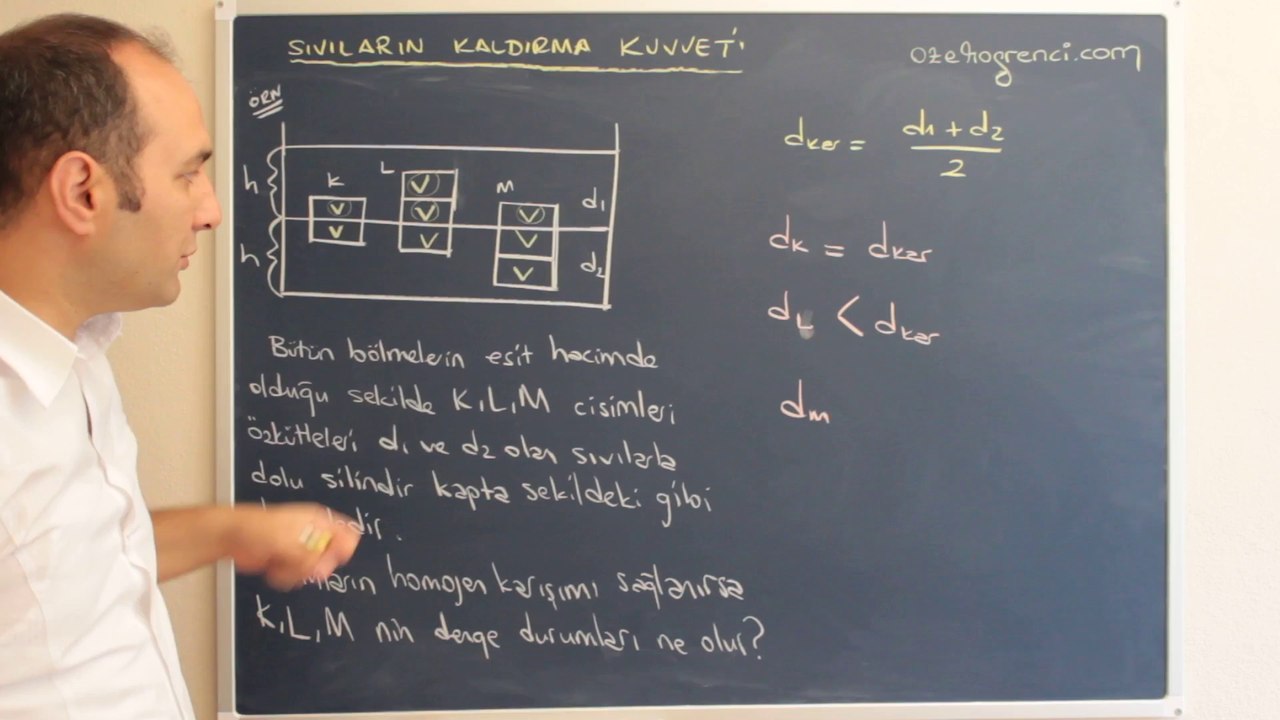 SIVILARIN KALDIRMA KUVVETİ
ozelogrenci.com
ÖRN
h
h
K
L
M
V
V
V
V
V
V
V
V
d1
d2
Bütün bölmelerin eşit hacimde
olduğu şekilde K,L,M cisimleri
özkütleleri d1 ve d2 olan sıvılarla
dolu silindir kapta şekildeki gibi
homojen karışımı sağlanırsa
K,L,M nin denge durumları ne olur?
dkar = d1 + d2 / 2
dK = dkar
dL < dkar
dM